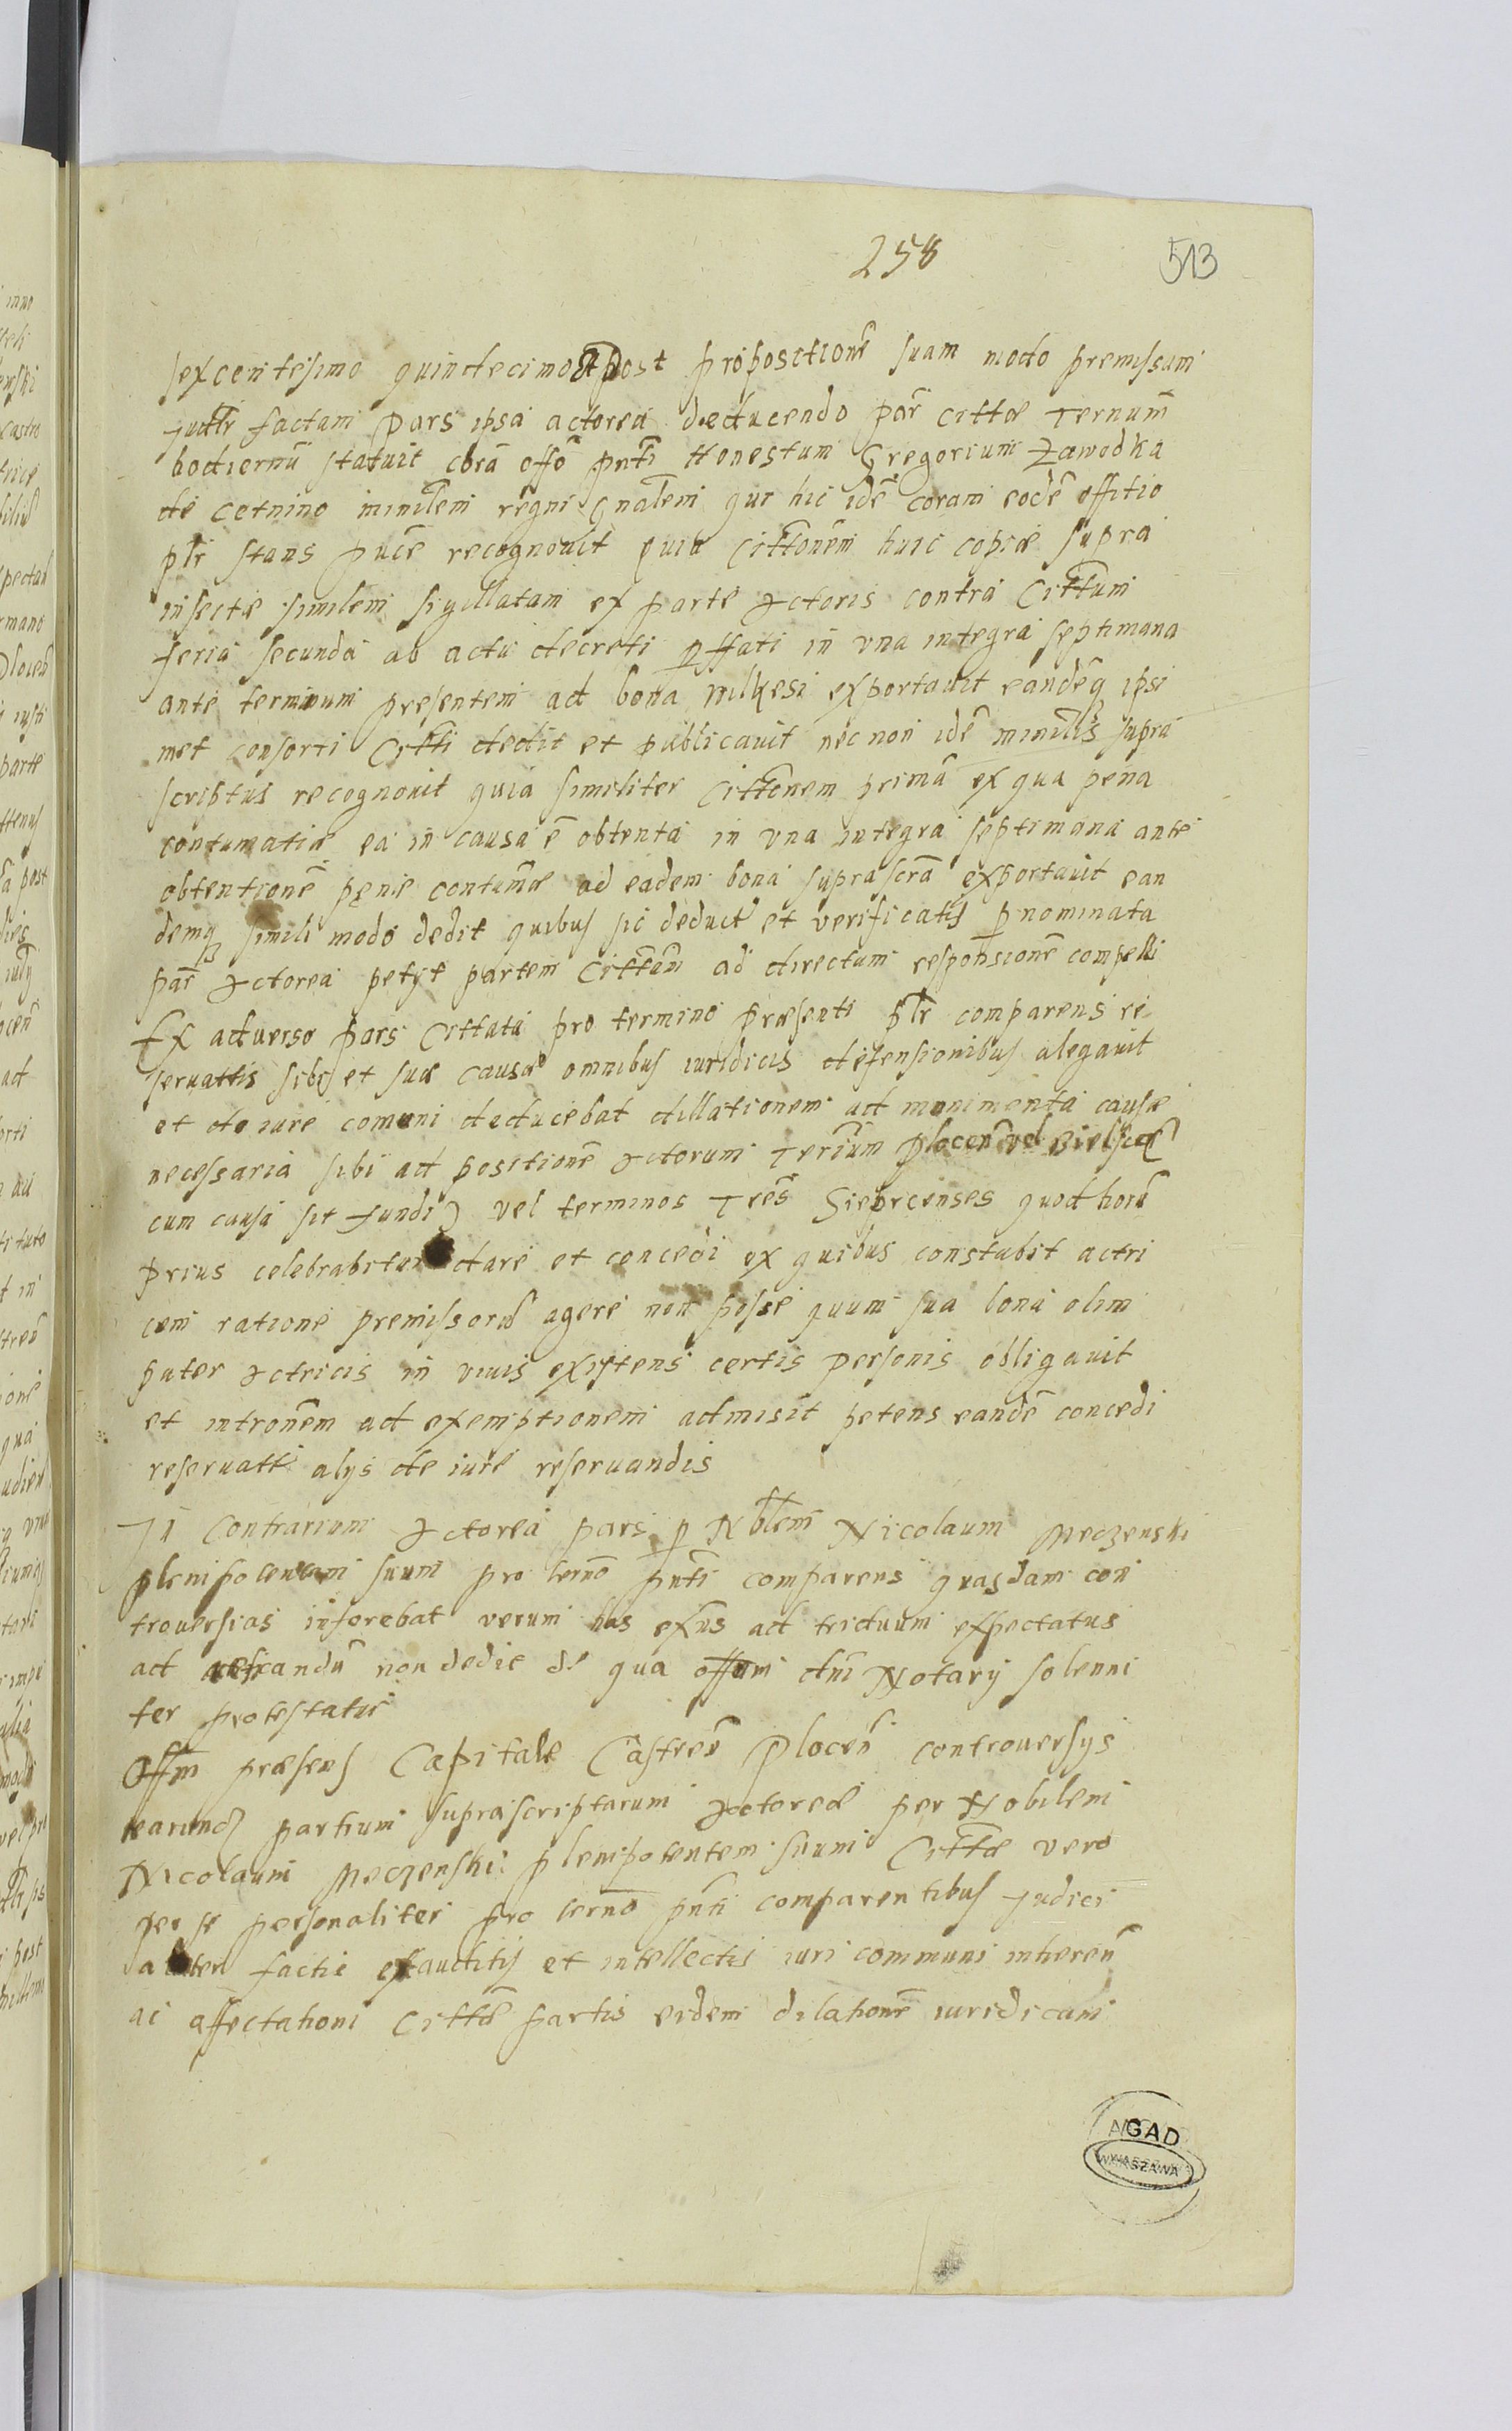 258
513
sexcentesimo quindecimo post propositionē suam modo premissum
Judtr factam Pars ipsa actorea deducendo por citta Ternum
hodiernū statuit corā offō pntī Honestum Gregorium Zawodka
de Cetnino ministem regni gnalem qui hic idē coram eodē offitio
plr stans pucē recognouit quia Cittonem huic copiæ supra
insectæ similem sigillatam ex parte Actoris contra Cittum
feria secunda ab actu decreti pffati in vna integra septimana
ante terminum presentem ad bona Milkesi exportauit eandēq ipsi
met consorti Citti dedit et publicauit nec non idē minilis supra
scriptus recognouit quia similiter Cittonem primā ex qua pena
contumatiæ ea in causa ē obtenta in vna integra septimana ante
obtentionē pęnæ contumæ ad eadem bona suprascrā exportauit ean
demq simili modo dedit quibus sic deduct et verificatis pnominata
pars Actorea petyt partem Cittam ad directam responsionē compelli
Ex aduerso pars Cittata pro termino præsenti plr comparens re
seruattis sibi et suæ causæ omnibus iuridicis defensionibus alegauit
et de iure comuni deducebat dillationem ad munimenta causæ
necessaria sibi ad positionē Actorum Terrium Plocen vel Bielscen
cum causa sit fundi vel terminos Tres Sieprcenses quod horū
prius celebrabitur dare et concedi ex quibus constabit actri
cem ratione premissorū agere non posse quum sua bona olim
pater Actricis in viuis existens certis personis obligauit
et intronem ad exemptionem admisit petens eandē concedi
reseruatt alys de iure reseruandis
In Contrarium Actorea pars p Nblem Nicolaum Meczenski
plenipotentem suum pro termo pntī comparens quasdam con
trouersias inferebat verum has exūs ad triduum expectatus
ad acticandū non dedit de qua offum dni Notary solenni
ter protestatur
Offm præsens Capitale Castren Plocen controuersys
earund partium suprascriptarum Actoreæ per Nobilem
Nicolaum Meczenski plenipotentem suum Cittæ vero
per se personaliter pro termo pnti comparentibus Judici
aliter factis exauditis et intellectis iuri communi inheren
ac affectationi Cittæ partis eidem dilationē iuridicam
AGAD
WARSZAWA